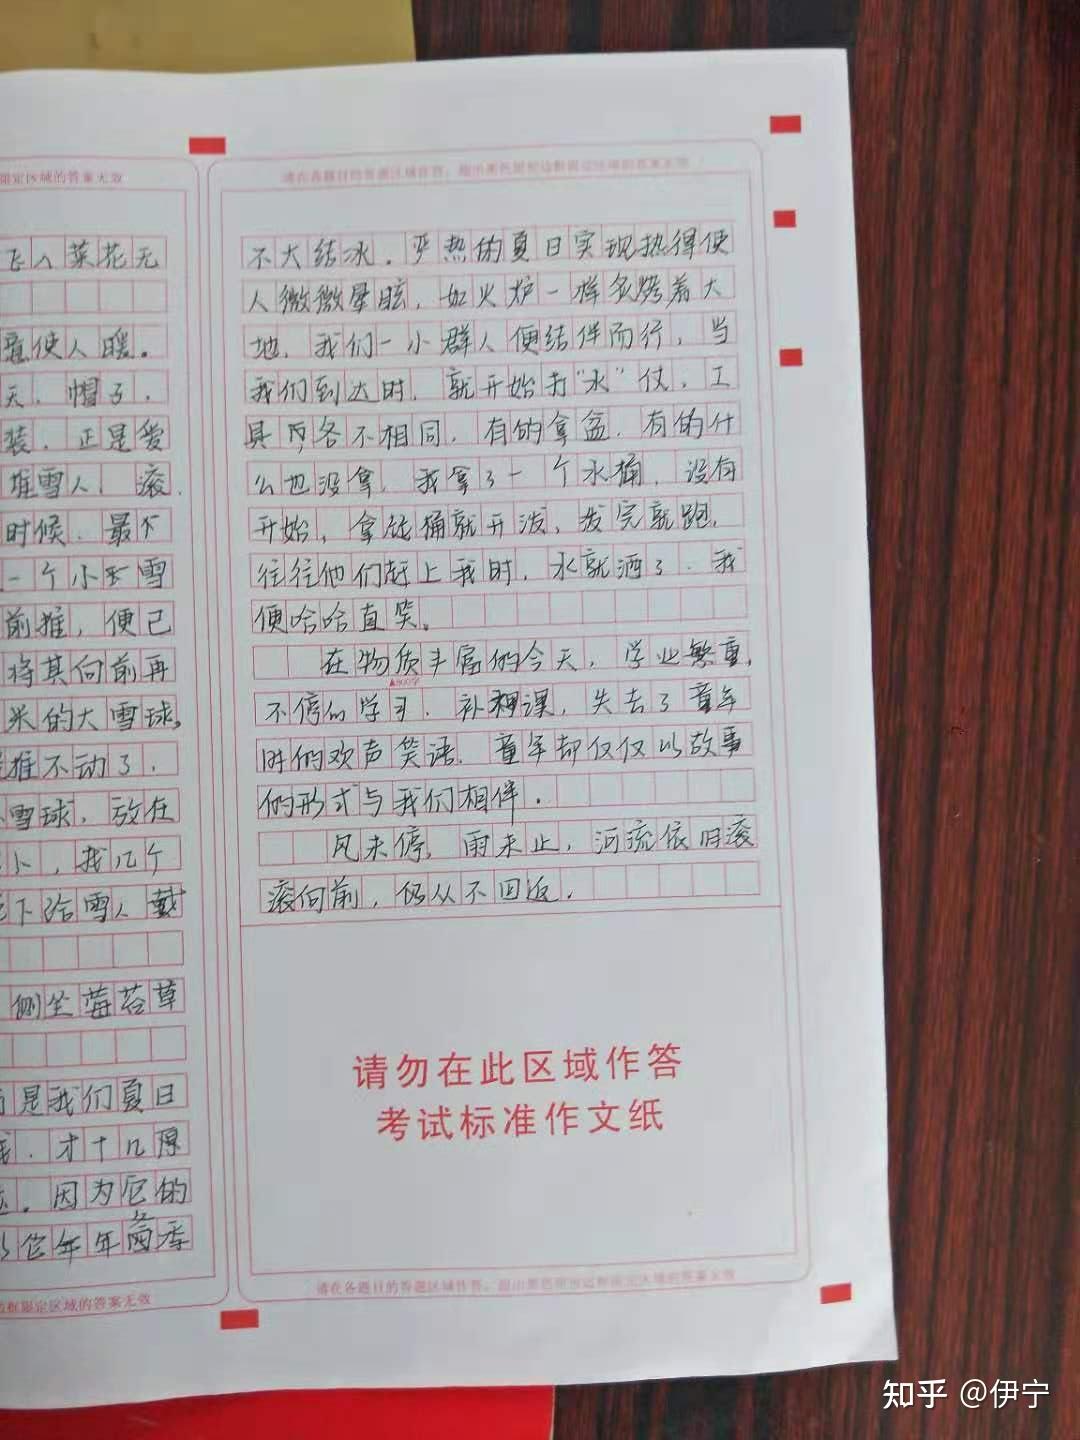 限定区域的答案无效
飞入菜花无
使人暖。
天，帽子，
装，正是爱
堆雪人，滚
时候，最下
一个小雪
前推，便已
将其向前再
米的大雪球。
推不动了，
雪球，放在
，我几个
下给雪人戴
侧坐莓苔草
是我们夏日
，才十几厚
。因为它的
年年两季
边框限定区域的答案无效
请在各题目的答题区域作答，超出黑色矩形边框限定区域的答案无效
不大结冰。严热的夏日实现热得使
人微微晕眩，如火炉一样炙烤着大
地，我们一小群人便结伴而行，当
我们到达时，就开始打"水"仗，工
具各不相同，有的拿盆，有的什
么也没拿，我拿了一个水桶，没有
开始，拿桶就开泼，泼完就跑，
往往他们赶上我时，水就洒了，我
便哈哈直笑。
在物质丰富的今天，学业繁重，
▲800字
不停的学习，补课，失去了童年
时的欢声笑语，童年却仅仅以故事
的形式与我们相伴。
风未停，雨未止，河流依旧滚
滚向前，仍从不回返。
请勿在此区域作答
考试标准作文纸
请在各题目的答题区域作答，超出黑色矩形边框限定区域的答案无效
知乎 @伊宁